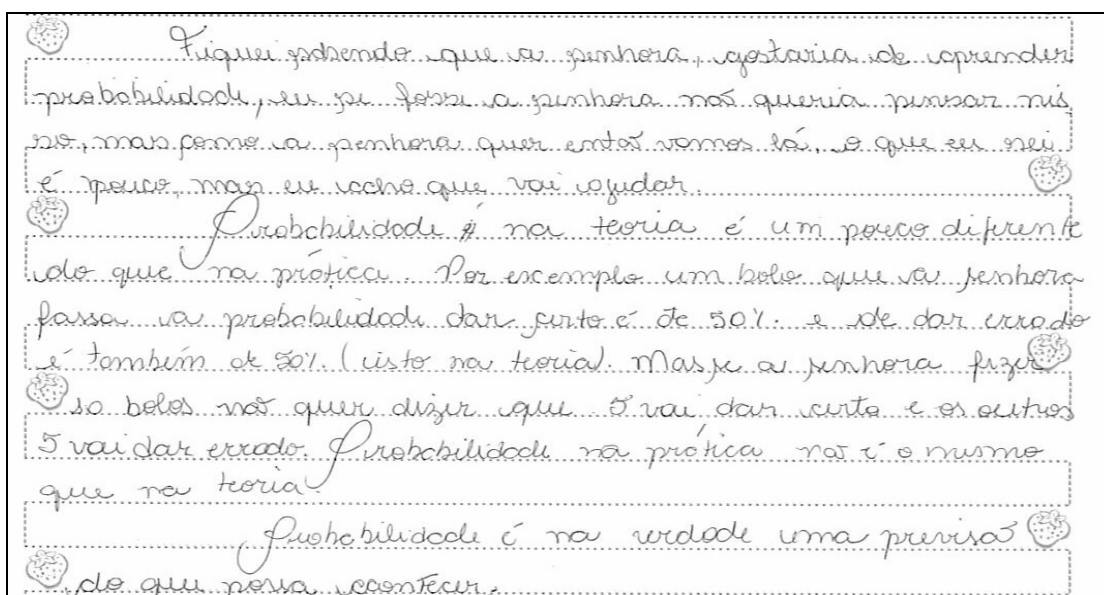 Fiquei sabendo que a senhora, gostaria de aprender
probabilidade, eu se fosse a senhora não queria pensar nis
so, mas como a senhora quer então vamos lá, o que eu sei
é pouco, mas eu acho que vai ajudar.
Probabilidade na teoria é um pouco diferente
do que na prática. Por exemplo um bolo que a senhora
fassa a probabilidade dar certo é de 50%. e de dar errado
é também de 50% (isto na teoria). Mas se a senhora fizer
10 bolos não quer dizer que 5 vai dar certo e os outros
5 vai dar errado. Probabilidade na prática não é o mesmo
que na teoria.
Probabilidade é na verdade uma previsão
do que possa acontecer.